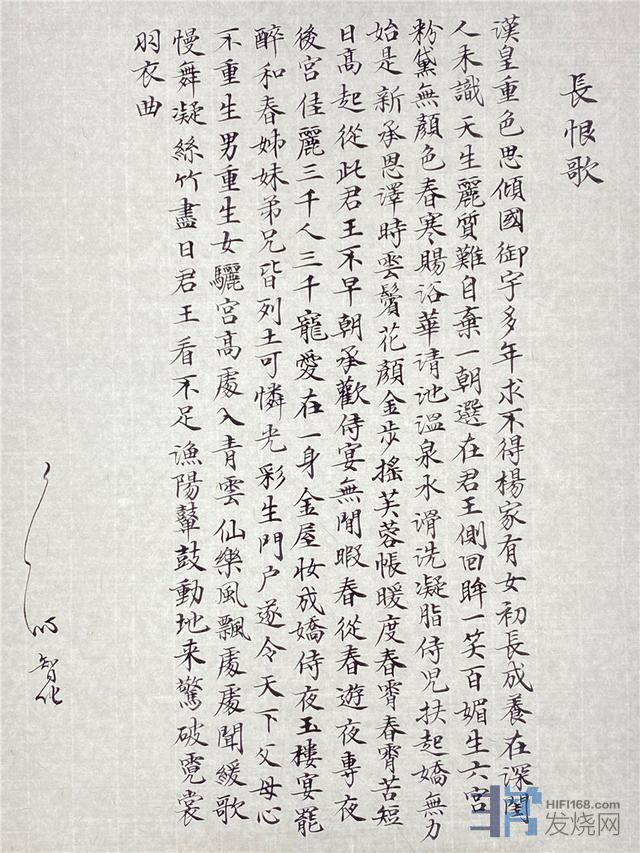 長恨歌
漢皇重色思傾國御宇多年求不得楊家有女初長成養在深閨
人未識天生麗質難自棄一朝選在君王側回眸一笑百媚生六宮
粉黛無顏色春寒賜浴華清池溫泉水滑洗凝脂侍児扶起嬌無力
始是新承恩澤時雲鬢花顏金步搖芙蓉帳暖度春宵春宵苦短
日高起從此君王不早朝承歡侍宴無閒暇春從春遊夜專夜
後宮佳麗三千人三千寵愛在一身金屋妝成嬌侍夜玉樓宴罷
醉和春姊妹弟兄皆列土可憐光彩生門戶遂令天下父母心
不重生男重生女驪宮高處入青雲仙樂風飄處處聞緩歌
慢舞凝絲竹盡日君王看不足漁陽鼙鼓動地来驚破霓裳
羽衣曲
智化
HIFI168.com
发烧网